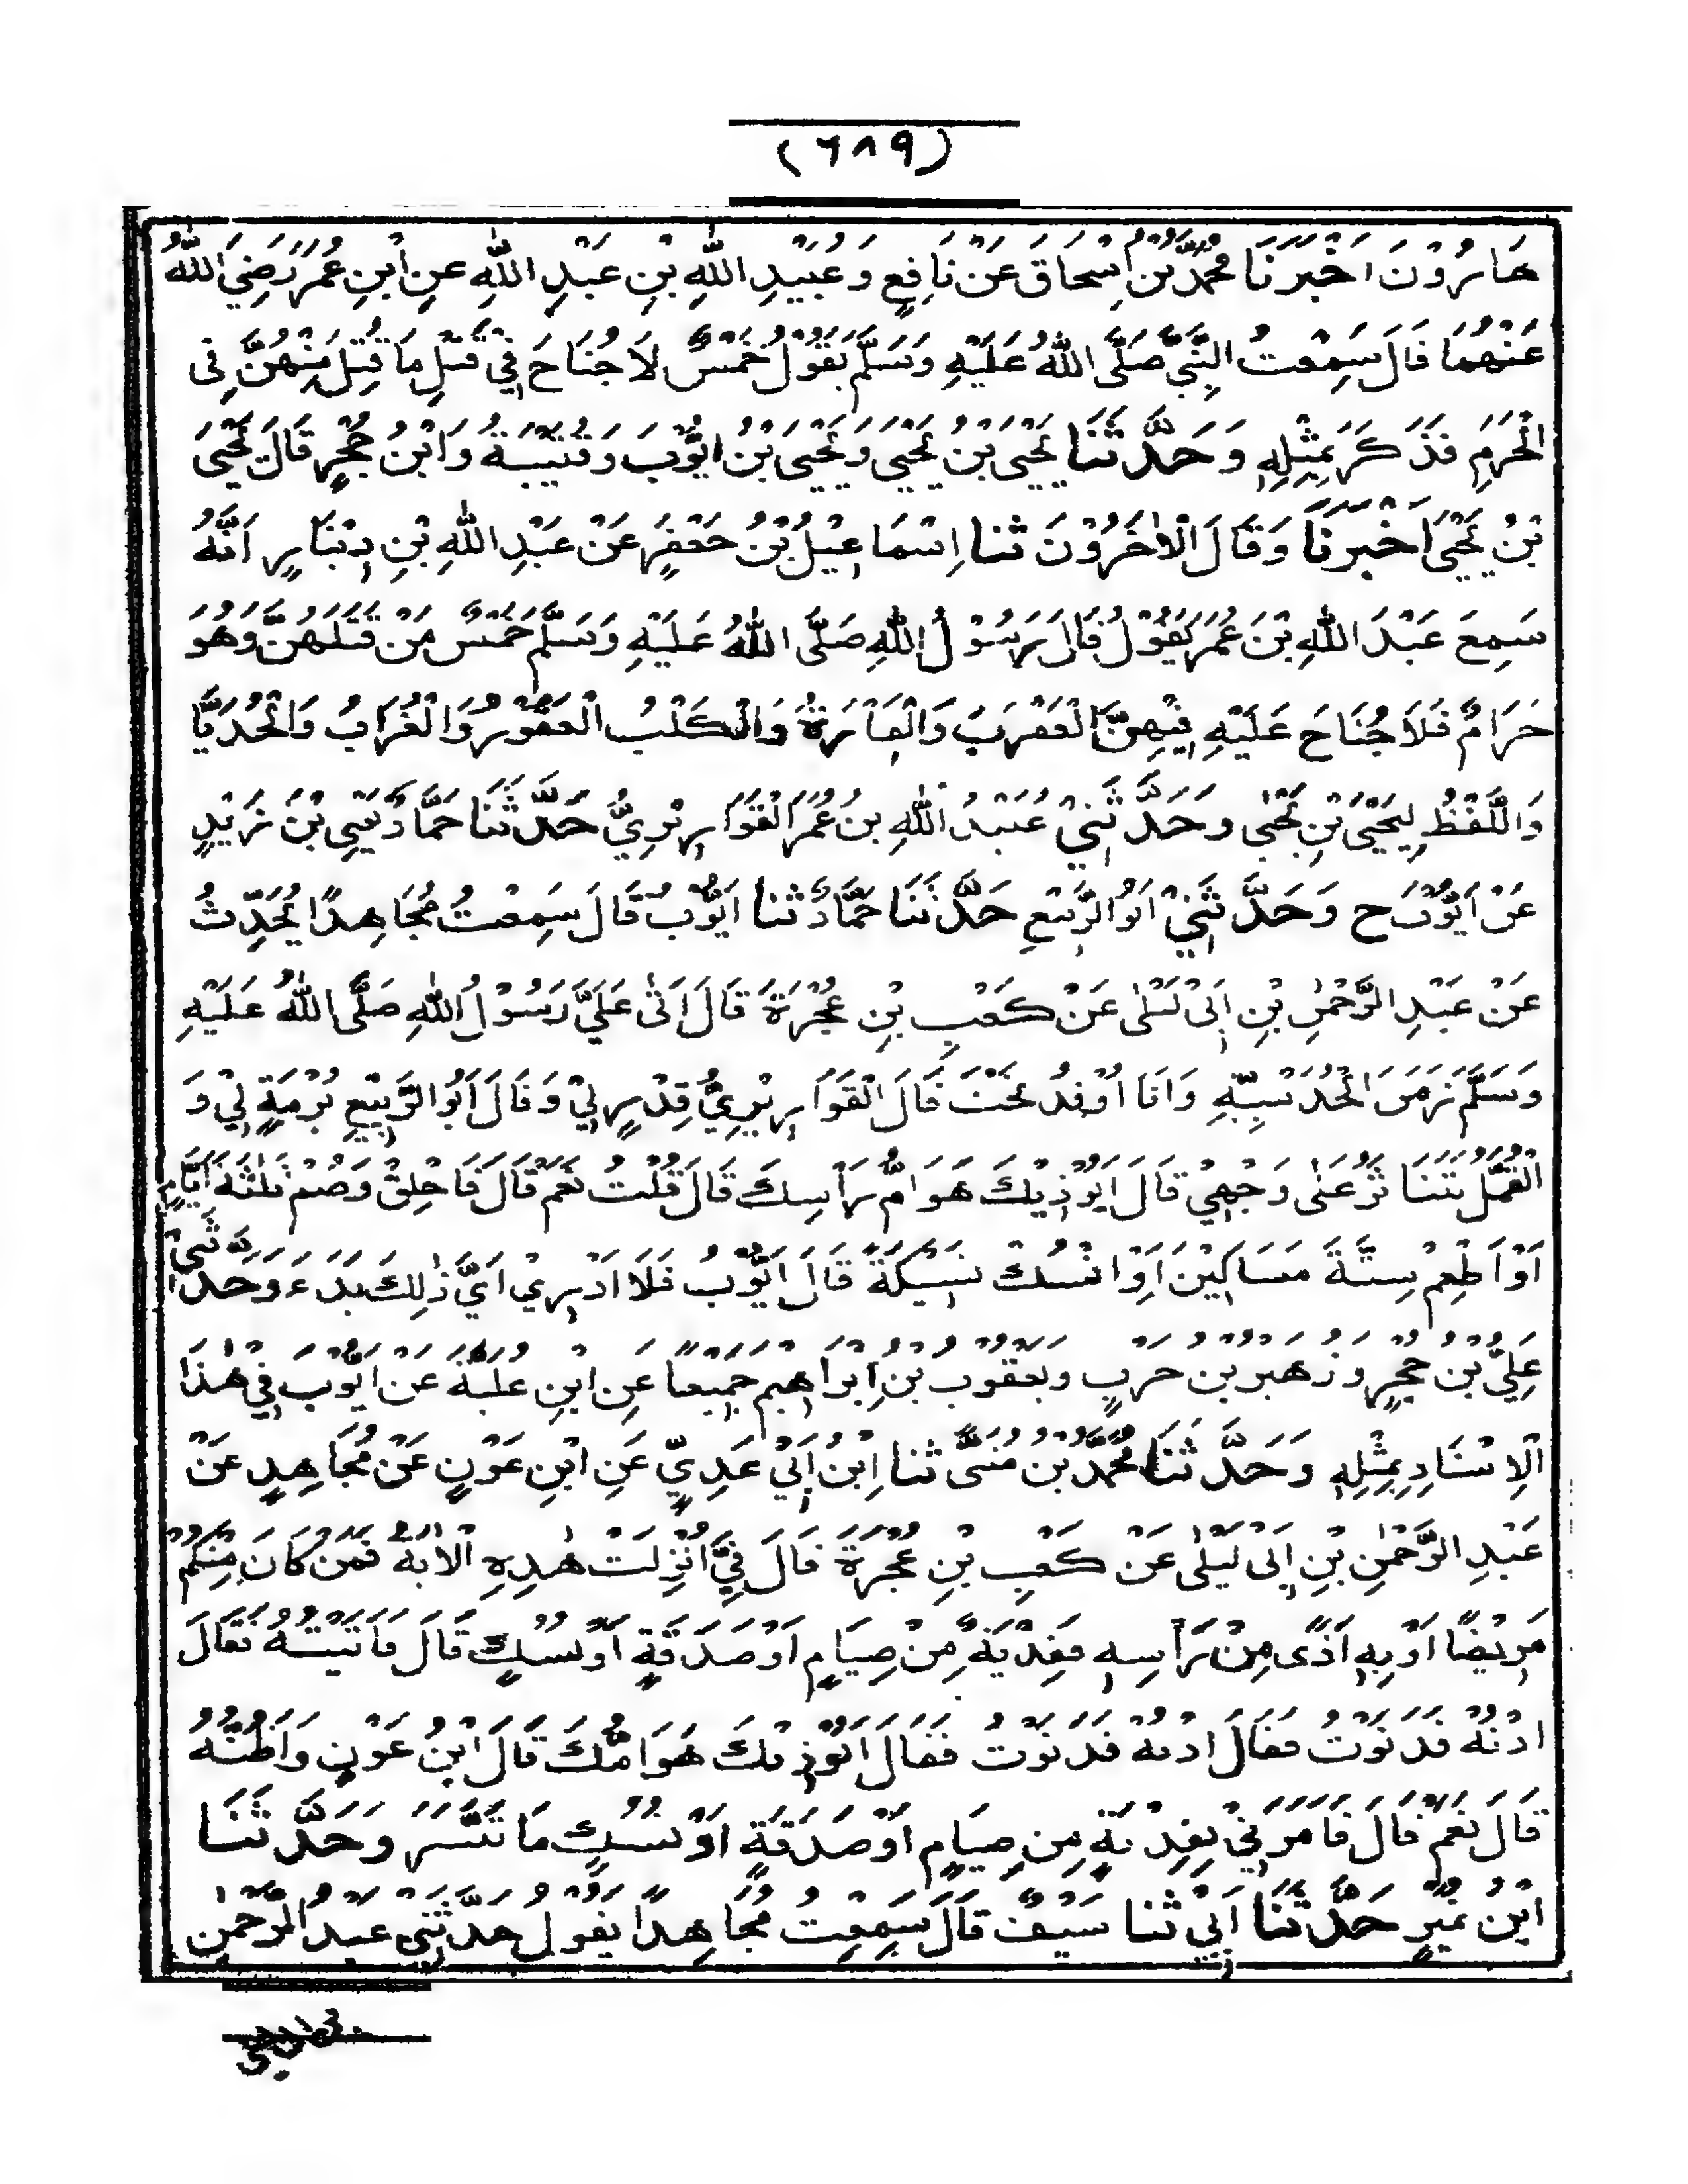 (٦٨٩)
هَارُوْنَ اَخْبَرَنَا مُحَمَّدُ بْنُ اِسْحَاقَ عَنْ نَافِعٍ وَعُبَيْدِ اللّٰهِ بْنِ عَبْدِ اللّٰهِ عَنِ ابْنِ عُمَرَ رَضِيَ اللّٰهُ
عَنْهُمَا قَالَ سَمِعْتُ النَّبِيَّ صَلَّى اللّٰهُ عَلَيْهِ وَسَلَّمَ يَقُوْلُ خَمْسٌ لَا جُنَاحَ فِيْ قَتْلِ مَا قُتِلَ مِنْهُنَّ فِى
الْحَرَمِ فَذَكَرَ بِمِثْلِهِ وَحَدَّثَنَا يَحْيَى بْنُ يَحْيٰى وَيَحْيَى بْنُ اَيُّوْبَ وَقُتَيْبَةُ وَابْنُ حُجْرٍ قَالَ يَحْيَى
بْنُ يَحْيٰى اَخْبَرَنَا وَقَالَ الْاٰخَرُوْنَ ثنا اِسْمَاعِيْلُ بْنُ جَعْفَرٍ عَنْ عَبْدِ اللّٰهِ بْنِ دِيْنَارٍ اَنَّهُ
سَمِعَ عَبْدَ اللّٰهِ بْنَ عُمَرَ يَقُوْلُ قَالَ رَسُوْلُ اللّٰهِ صَلَّى اللّٰهُ عَلَيْهِ وَسَلَّمَ خَمْسٌ مَنْ قَتَلَهُنَّ وَهُوَ
حَرَامٌ فَلَا جُنَاحَ عَلَيْهِ فِيْهِنَّ الْعَقْرَبُ وَالْفَاْرَةُ وَالْكَلْبُ الْعَقُوْرُ وَالْغُرَابُ وَالْحُدَيَّا
وَاللَّفْظُ لِيَحْيَى بْنِ يَحْيٰى وَحَدَّثَنِيْ عُبَيْدُ اللّٰهِ بْنُ عُمَرَ الْقَوَارِيْرِيُّ حَدَّثَنَا حَمَّادٌ يَعْنِي بْنَ زَيْدٍ
عَنْ اَيُّوْبَ ح وَحَدَّثَنِيْ اَبُو الرَّبِيْعِ حَدَّثَنَا حَمَّادٌ ثنا اَيُّوْبُ قَالَ سَمِعْتُ مُجَاهِدًا يُحَدِّثُ
عَنْ عَبْدِ الرَّحْمٰنِ بْنِ اَبِيْ لَيْلٰى عَنْ كَعْبِ بْنِ عُجْرَةَ قَالَ اَتٰى عَلَيَّ رَسُوْلُ اللّٰهِ صَلَّى اللّٰهُ عَلَيْهِ
وَسَلَّمَ زَمَنَ الْحُدَيْبِيَّةِ وَاَنَا اُوْقِدُ تَحْتَ قَالَ الْقَوَارِيْرِيُّ قِدْرٍ لِيْ وَقَالَ اَبُو الرَّبِيْعِ بُرْمَةٍ لِيْ وَ
الْقَمْلُ يَتَنَاثَرُ عَلٰى وَجْهِيْ قَالَ اَيُؤْذِيْكَ هَوَامُّ رَأْسِكَ قَالَ قُلْتُ نَعَمْ قَالَ فَاحْلِقْ وَصُمْ ثَلٰثَةَ اَيَّامٍ
اَوْ اَطْعِمْ سِتَّةَ مَسَاكِيْنَ اَوِ انْسُكْ نَسِيْكَةً قَالَ اَيُّوْبُ فَلَا اَدْرِيْ اَيَّ ذٰلِكَ بَدَءَ وَحَدَّثَنِيْ
عَلِيُّ بْنُ حُجْرٍ وَزُهَيْرُ بْنُ حَرْبٍ وَيَعْقُوْبُ بْنُ اِبْرَاهِيْمَ جَمِيْعًا عَنِ ابْنِ عُلَيَّةَ عَنْ اَيُّوْبَ فِيْ هٰذَا
الْاِسْنَادِ بِمِثْلِهِ وَحَدَّثَنَا مُحَمَّدُ بْنُ مُثَنًّى ثنا اِبْنُ اَبِيْ عَدِيٍّ عَنِ ابْنِ عَوْنٍ عَنْ مُجَاهِدٍ عَنْ
عَبْدِ الرَّحْمٰنِ بْنِ اَبِى لَيْلٰى عَنْ كَعْبِ بْنِ عُجْرَةَ قَالَ فِيَّ اُنْزِلَتْ هٰذِهِ الْاٰيَةُ فَمَنْ كَانَ مِنْكُمْ
مَرِيْضًا اَوْ بِهٖ اَذًى مِنْ رَأْسِهٖ فَفِدْيَةٌ مِنْ صِيَامٍ اَوْ صَدَقَةٍ اَوْ نُسُكٍ قَالَ فَاَتَيْتُهُ فَقَالَ
ادْنُهْ فَدَنَوْتُ فَقَالَ ادْنُهْ فَدَنَوْتُ فَقَالَ اَيُؤْذِيْكَ هَوَامُّكَ قَالَ ابْنُ عَوْنٍ وَاَظُنُّهُ
قَالَ نَعَمْ قَالَ فَاَمَرَنِيْ بِفِدْيَةٍ مِنْ صِيَامٍ اَوْ صَدَقَةٍ اَوْ نُسُكٍ مَا تَيَسَّرَ وَحَدَّثَنَا
ابْنُ نُمَيْرٍ حَدَّثَنَا اَبِيْ ثنا سَيْفٌ قَالَ سَمِعْتُ مُجَاهِدًا يَقُوْلُ حَدَّثَنِيْ عَبْدُ الرَّحْمٰنِ